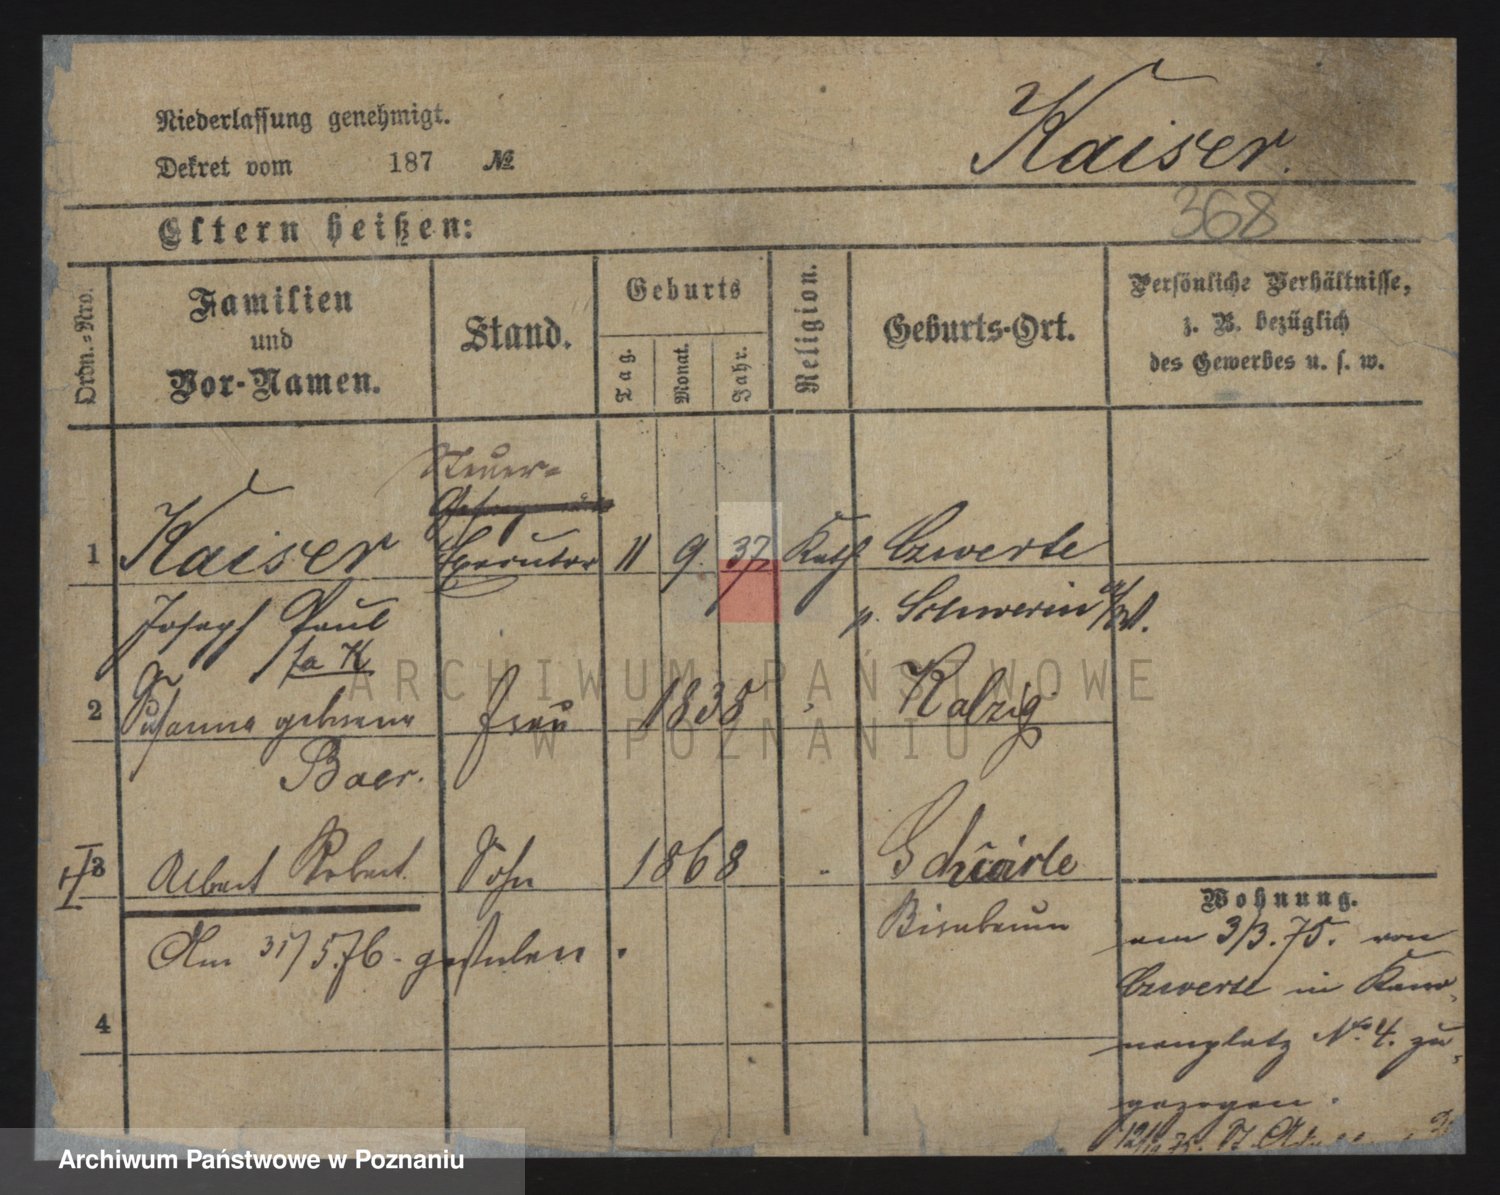 Niederlassung genehmigt.
Dekret vom 187 №
Kaiser.
368
Eltern heißen:
Ordn.-Nro.
Familien
und
Vor-Namen.
Stand.
Geburts
Tag.
Monat.
Jahr.
Religion.
Geburts-Ort.
Persönliche Verhältnisse,
z. B. bezüglich
des Gewerbes u. s. w.
Steuer-
1 Kaiser Executor 11 9. 37. Kath Czwerte
Joseph Paul
p. Schwerin a/W.
2 Susanna geborene Frau 1835 Kalzig
Baer.
3 Albert Robert Sohn 1868
Birnbaum
Am 31/5.76. gestorben.
4
Wohnung.
am 3/3.75. von
Czwerte in Kano-
nenplatz No 4. zu-
gezogen.
ARCHIWUM PAŃSTWOWE
W POZNANIU
Archiwum Państwowe w Poznaniu